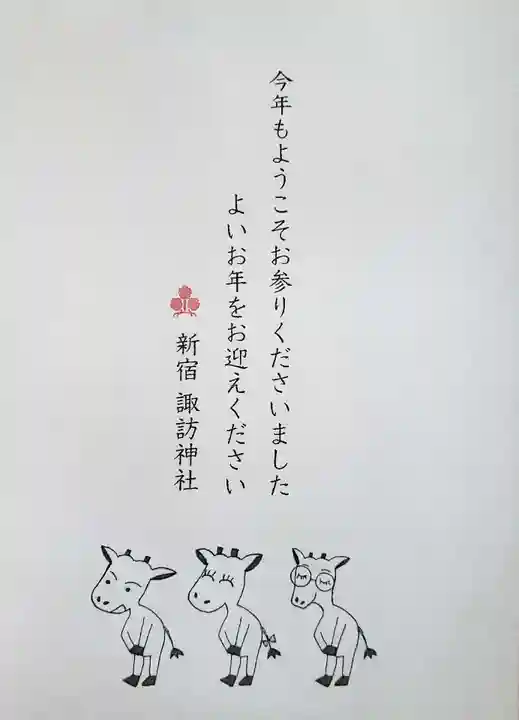 今年もようこそお参りくださいました
よいお年をお迎えください
新宿 諏訪神社